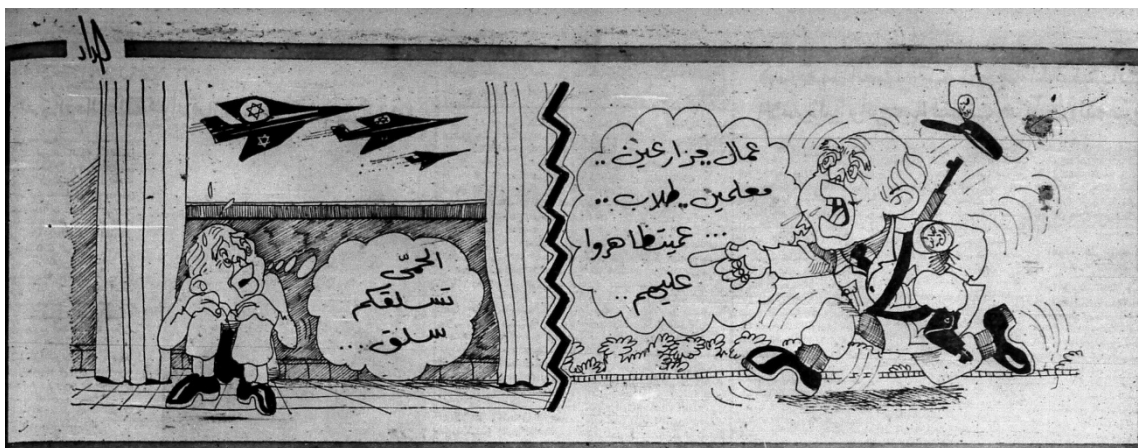 عمال .. مزارعين ..
معلمين .. طلاب ..
... عميتظاهروا
عليهم ..
الحمّى
تسلقكم
سلق ...